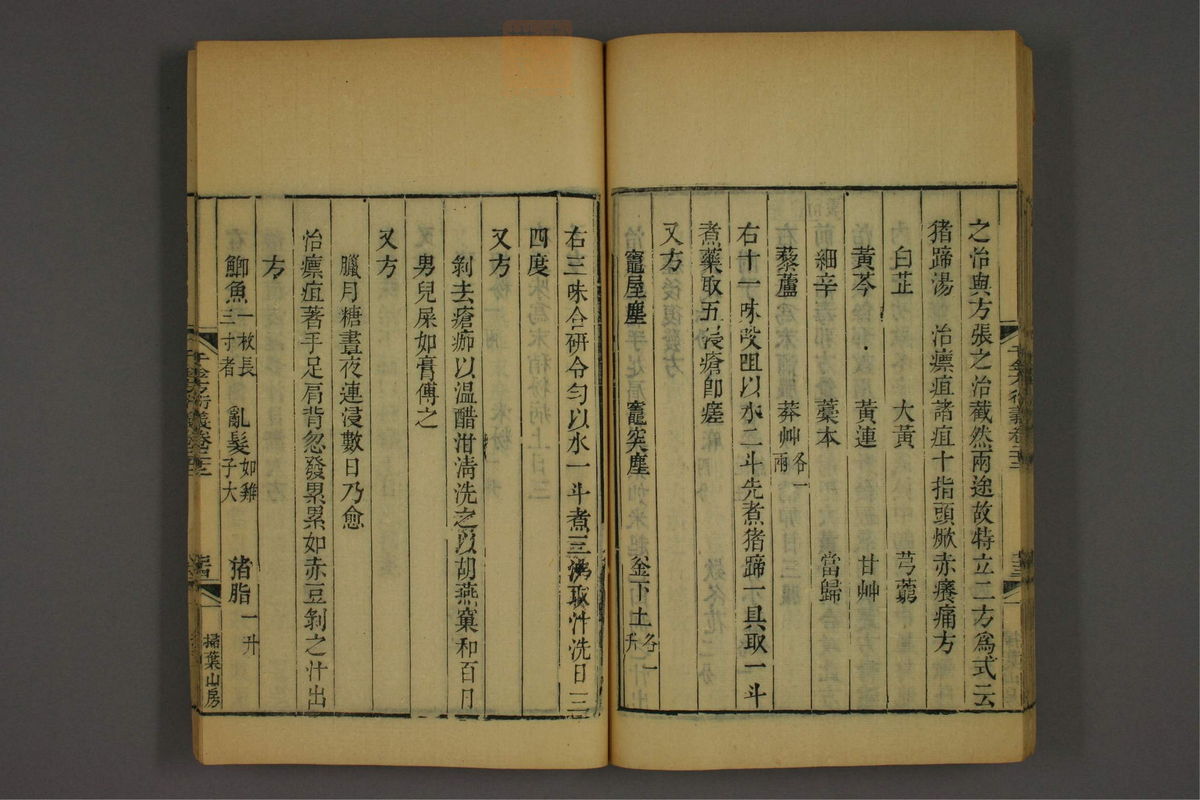 之治與方張之治截然兩途故特立二方爲式云
猪蹄湯 治瘭疽諸疽十指頭焮赤癢痛方
白芷 大黃 芎藭
黃芩 黃連 甘艸
細辛 藁本 當歸
藜蘆 莽艸各一兩
右十一味㕮咀以水二斗先煮猪蹄一具取一斗
煮藥取五浸瘡卽瘥
又方
竈屋塵 竈突塵 釜下土各一升
右三味合研令匀以水一斗煮三沸取汁洗日三
四度
又方
剝去瘡痂以温醋泔清洗之以胡燕窠和百日
男兒屎如膏傅之
又方
臘月糖晝夜連浸數日乃愈
治瘭疽著手足肩背忽發累累如赤豆剝之汁出
方
鯽魚一枚長三寸者 亂髮如雞子大 猪脂一升
千金方衍義卷二十二
掃葉山房